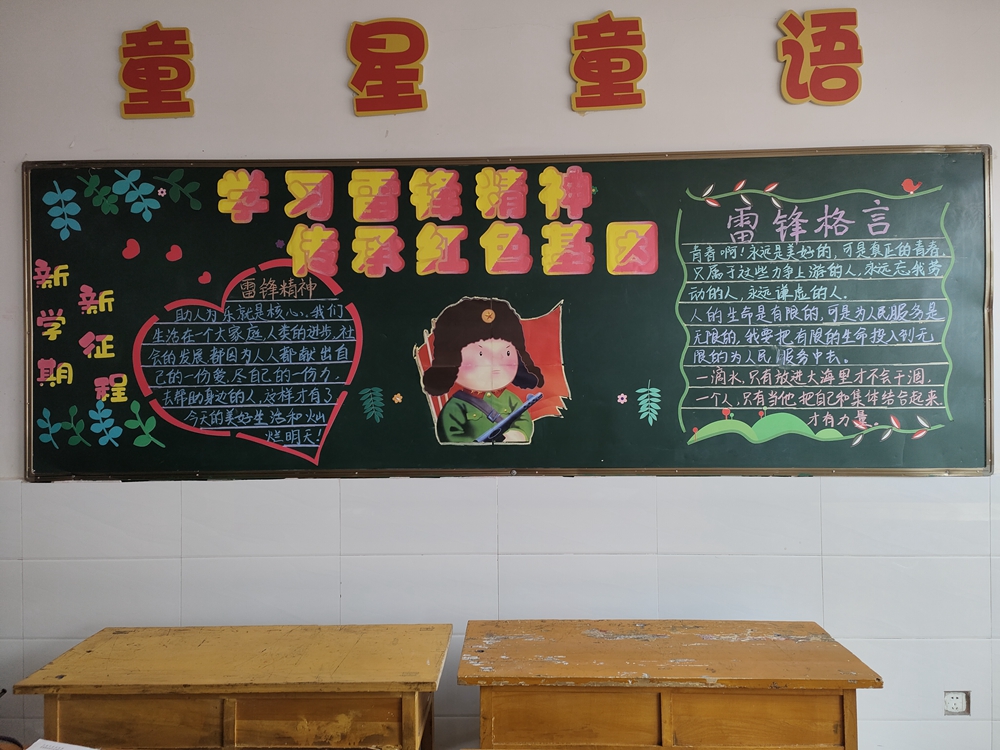 童星童语
学习雷锋精神
传承红色基因
新学期
新征程
雷锋精神
助人为乐就是核心,我们
生活在一个大家庭,人类的进步,社
会的发展,都因为人人都献出自
己的一份爱,尽自己的一份力,
去帮助身边的人,这样才有了
今天的美好生活和灿
烂明天!
雷锋格言
青春啊!永远是美好的,可是真正的青春,
只属于这些力争上游的人,永远忘我劳
动的人,永远谦虚的人.
人的生命是有限的,可是为人民服务是
无限的,我要把有限的生命投入到无
限的为人民服务中去。
一滴水,只有放进大海里才不会干涸,
一个人,只有当他把自己和集体结合起来,
才有力量。